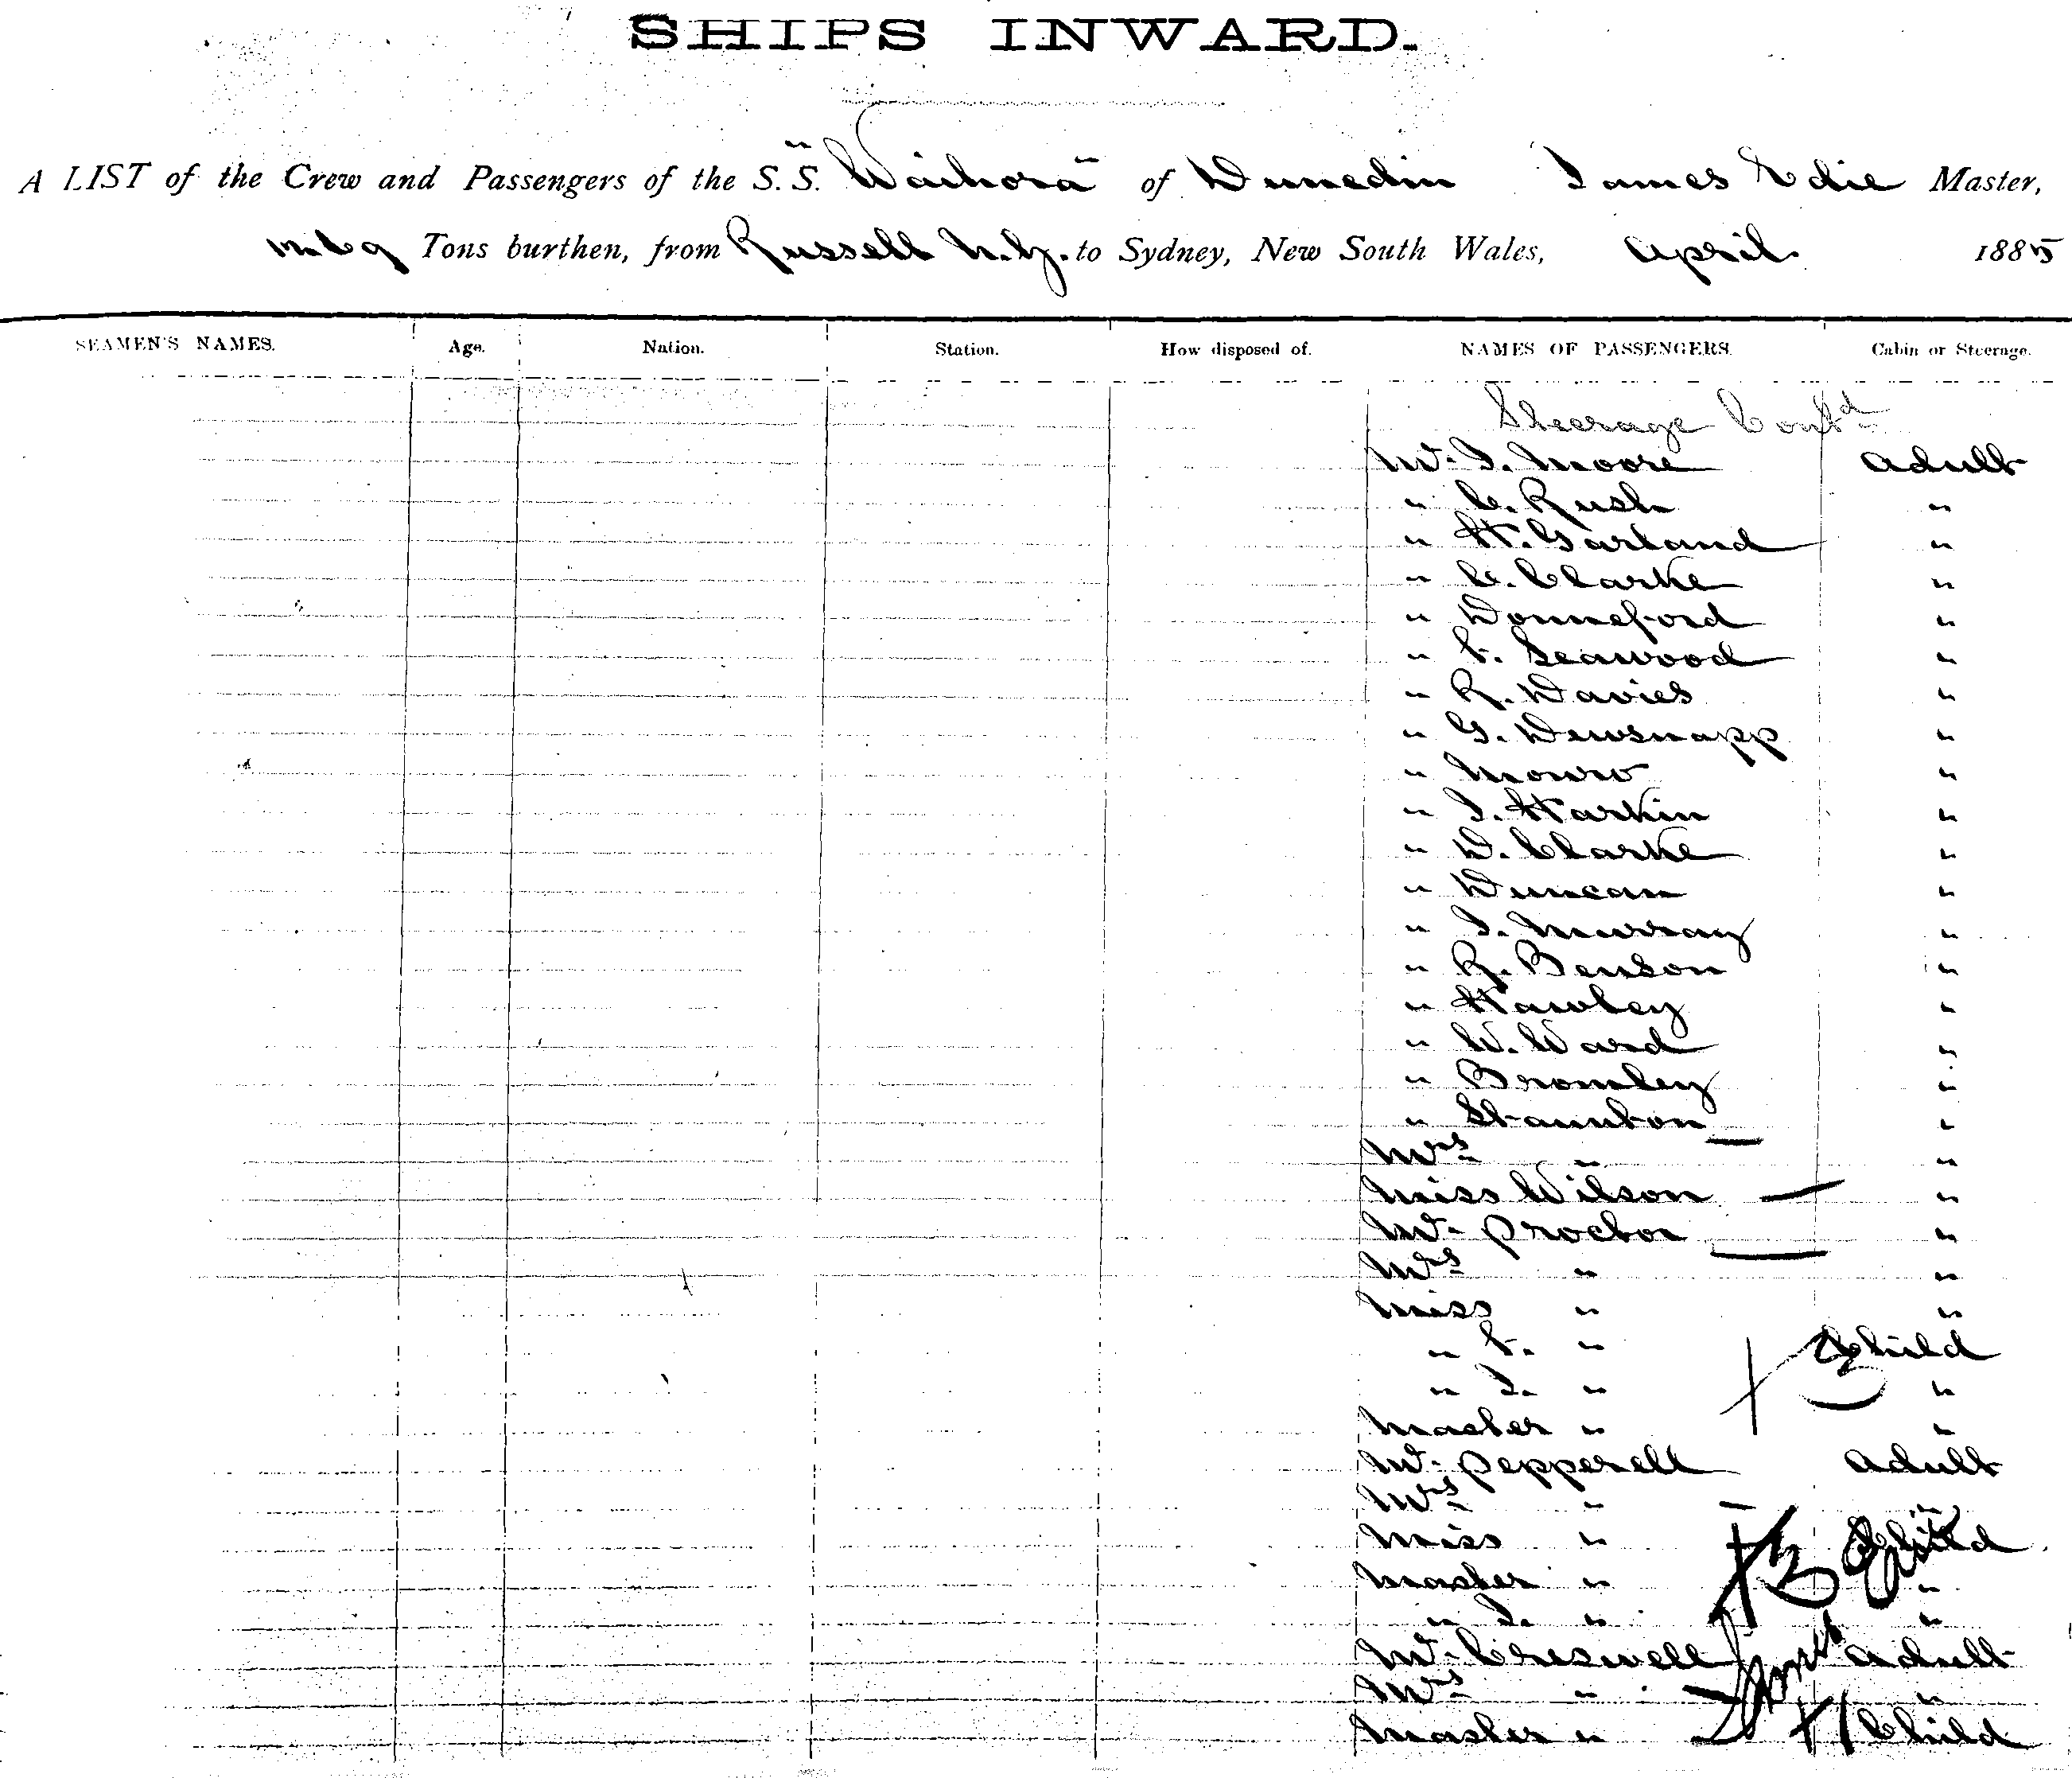 SHIPS INWARD.
A LIST of the Crew and Passengers of the S.S. "Waihora" of Dunedin James Edie Master,
Tons burthen, from Russell N.Z. to Sydney, New South Wales, April 1885
SEAMEN'S NAMES. Age. Nation. Station. How disposed of. NAMES OF PASSENGERS. Cabin or Steerage.
Steerage Contd
Mr. J. Moore adult
" C. Rush "
" H. Garland "
" C. Clarke "
" Donneford "
" t. Seawood "
" R. Davies "
" G. Dewsnapp "
" Monro "
" J. Harkin "
" D. Clarke "
" Duncan "
" J. Murray "
" R. Benson "
" Hawley "
" W. Ward "
" Bromley "
" Staunton "
Mrs " "
Miss Wilson "
Mr. Proctor "
Mrs " "
Miss " "
" t. " Child
" J. " "
Master " "
Mr. Pepperell adult
Mrs " "
Miss " Child
Master " "
" J. " "
Mr. Creswell adult
Mrs " "
Master " Child